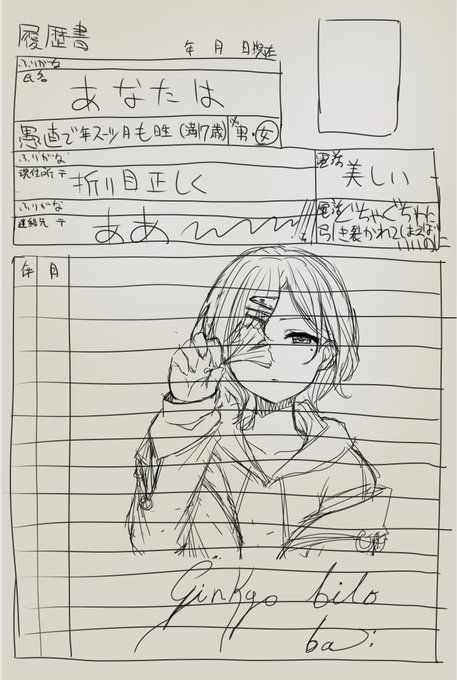 履歴書
年 月 日現在
ふりがな
氏名
あなたは
愚直で年スーツ月も日生(満17歳)
※男・女
ふりがな
現住所 〒
折り目正しく
電話
美しい
ふりがな
連絡先 〒
ああ
電話
ぐちゃぐちゃに
引き裂かれてしまえば
いいのに
年 月
Ginkgo bilo
ba